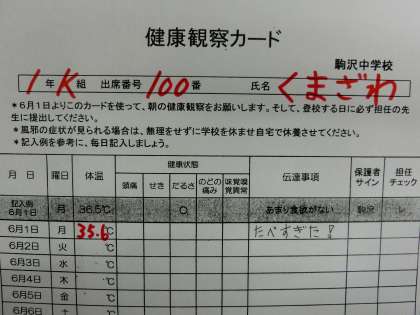 健康観察カード
駒沢中学校
1年K組 出席番号100番 氏名 くまざわ
＊6月1日よりこのカードを使って、朝の健康観察をお願いします。そして、登校する日に必ず担任の先
生に提出してください。
＊風邪の症状が見られる場合は、無理をせずに学校を休ませ自宅で休養させてください。
＊記入例を参考に、毎日記入しましょう。
月 日 曜日 体温 健康状態 伝達事項 保護者サイン 担任チェック
頭痛 せき だるさ のどの痛み 味覚嗅覚異常
記入例 6月1日 月 36.5℃ ○ あまり食欲がない 駒沢 レ
6月1日 月 35.6℃ たべすぎた!
6月2日 火 ℃
6月3日 水 ℃
6月4日 木 ℃
6月5日 金 ℃
6月6日 土 ℃